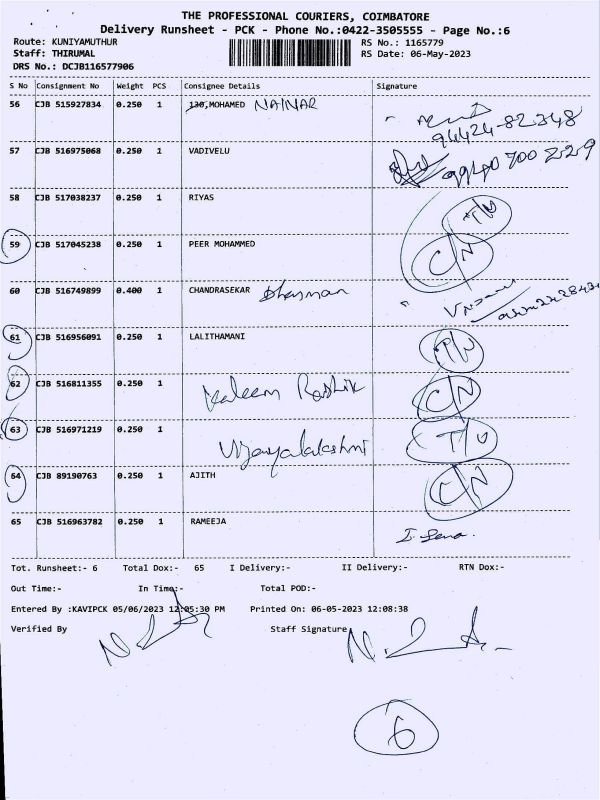 THE PROFESSIONAL COURIERS, COIMBATORE
Delivery Runsheet - PCK - Phone No.:0422-3505555 - Page No.:6
Route: KUNIYAMUTHUR RS No.: 1165779
Staff: THIRUMAL RS Date: 06-May-2023
DRS No.: DCJB116577906
S No Consignment No Weight PCS Consignee Details Signature
56 CJB 515927834 0.250 1 130,MOHAMED NAINAR
94424-82348
57 CJB 516975068 0.250 1 VADIVELU
58 CJB 517038237 0.250 1 RIYAS
59 CJB 517045238 0.250 1 PEER MOHAMMED C/N
60 CJB 516749899 0.400 1 CHANDRASEKAR
61 CJB 516956091 0.250 1 LALITHAMANI
62 CJB 516811355 0.250 1 C/N
63 CJB 516971219 0.250 1 Vijayalakshmi
64 CJB 89190763 0.250 1 AJITH C/N
65 CJB 516963782 0.250 1 RAMEEJA
Tot. Runsheet:- 6 Total Dox:- 65 I Delivery:- II Delivery:- RTN Dox:-
Out Time:- In Time:- Total POD:-
Entered By :KAVIPCK 05/06/2023 12:05:30 PM Printed On: 06-05-2023 12:08:38
Verified By Staff Signature
6